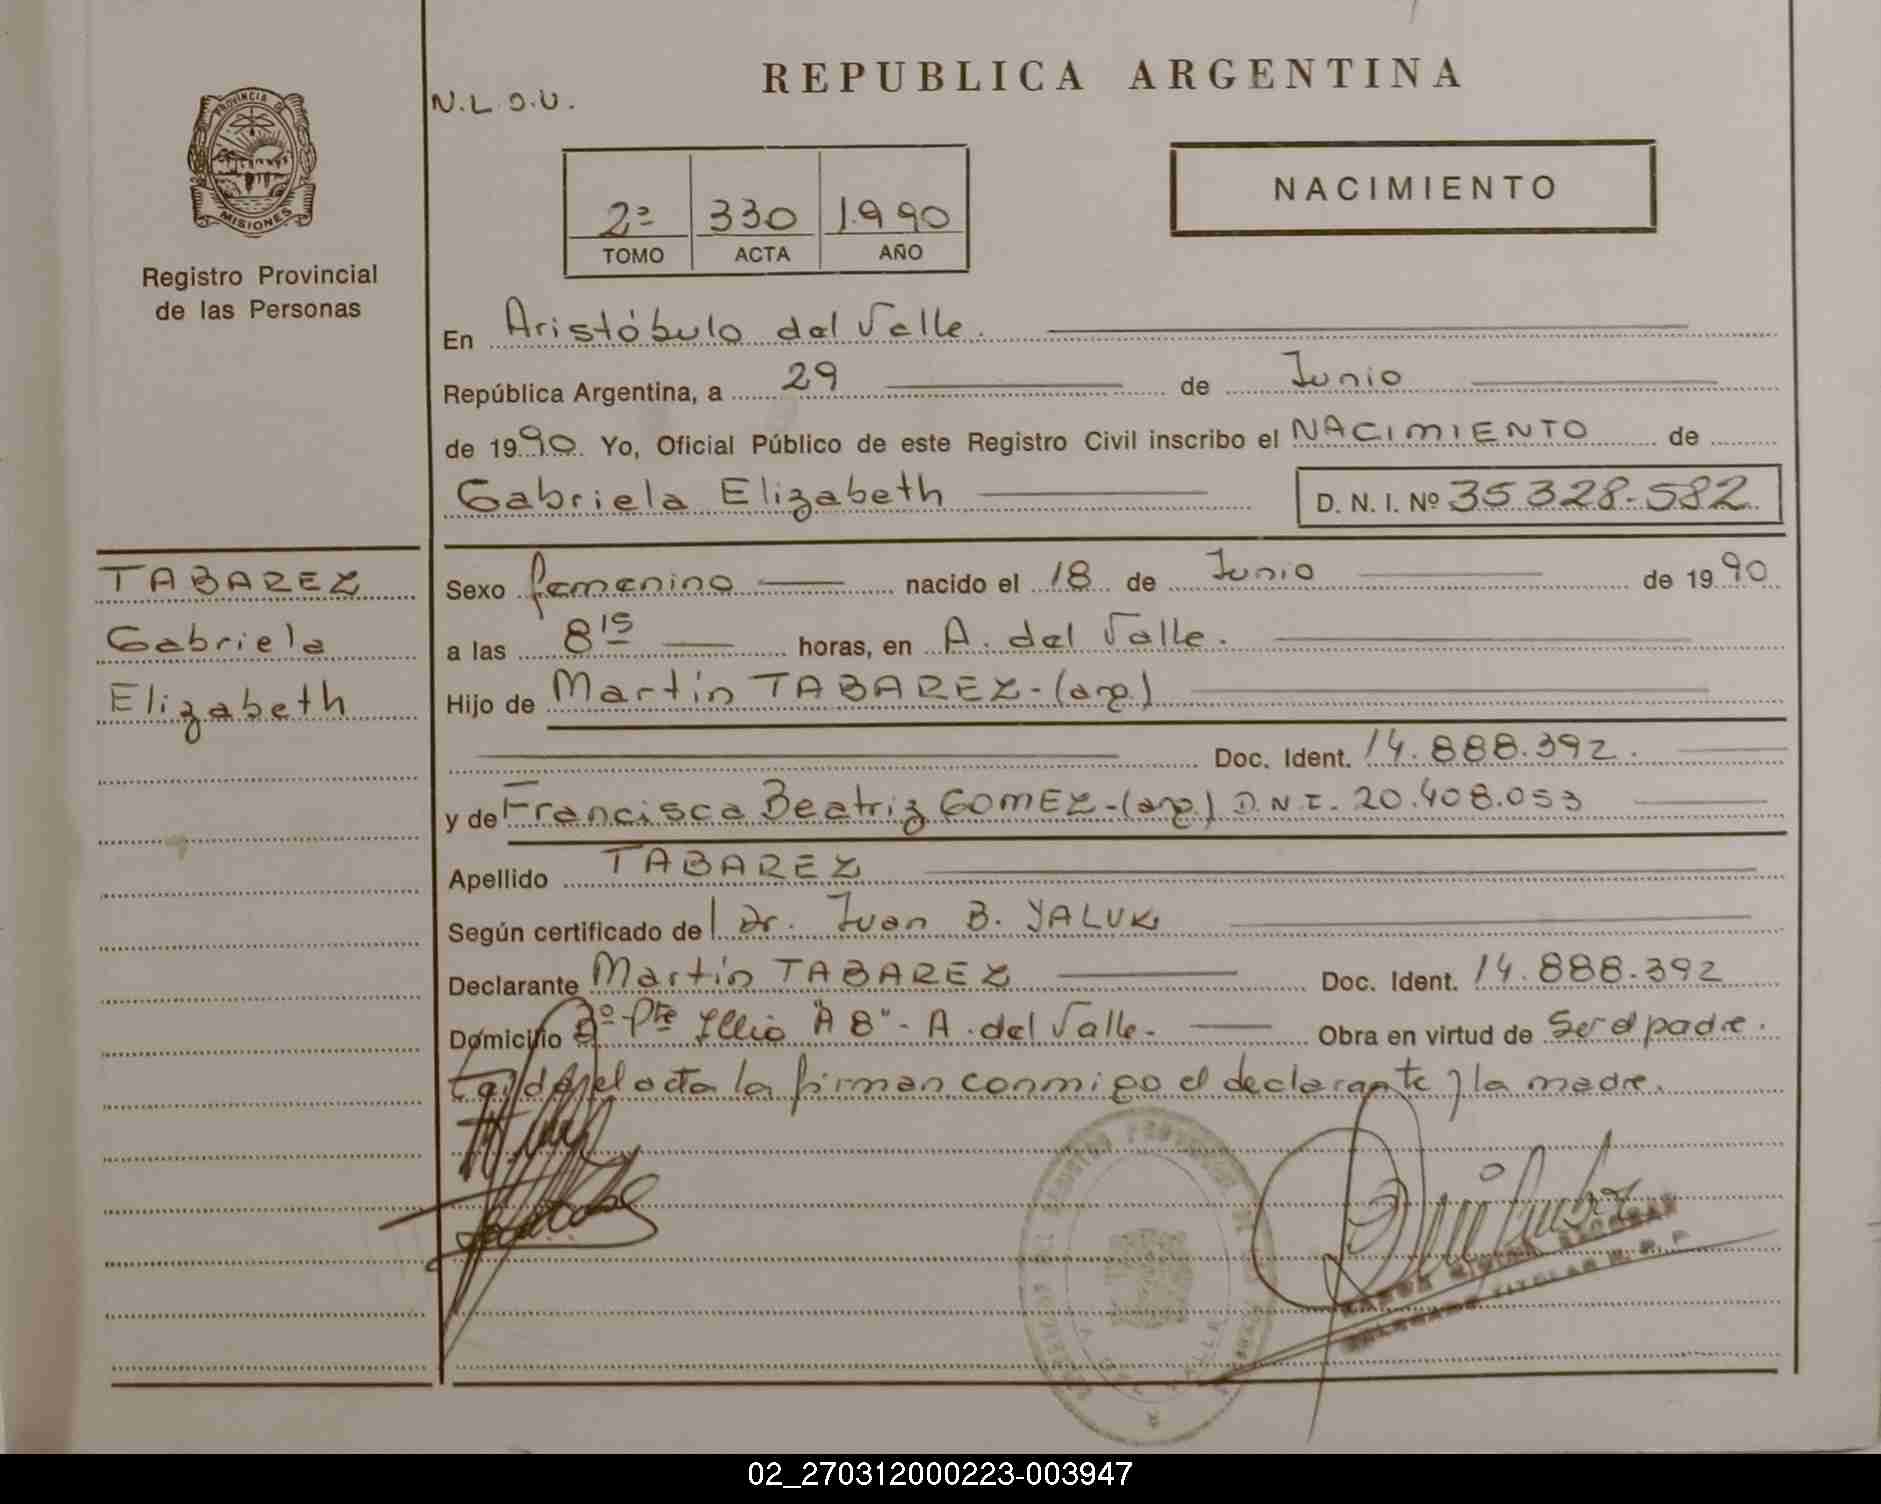 REPUBLICA ARGENTINA
PROVINCIA DE
MISIONES
Registro Provincial
de las Personas
N.L.O.U.
2º 330 1.990
TOMO ACTA AÑO
NACIMIENTO
En Aristóbulo del Valle.
República Argentina, a 29 de Junio
de 1990. Yo, Oficial Público de este Registro Civil inscribo el NACIMIENTO de
Gabriela Elizabeth D. N. I. Nº 35.328.582
TABAREZ
Gabriela
Elizabeth
Sexo femenino nacido el 18 de Junio de 1990
a las 8 15 horas, en A. del Valle.
Hijo de Martín TABAREZ-(arg.)
Doc. Ident. 14.888.392.
y de Francisca Beatriz GOMEZ-(arg.) D.N.I. 20.408.053
Apellido TABAREZ
Según certificado de Dr. Juan B. YALUK
Declarante Martín TABAREZ Doc. Ident. 14.888.392
Domicilio Bº Pte Illia "A 8"- A. del Valle. Obra en virtud de Ser el padre.
el acta la firman conmigo el declarante y la madre.
VALLE
TITULAR R. P. P.
02_270312000223-003947